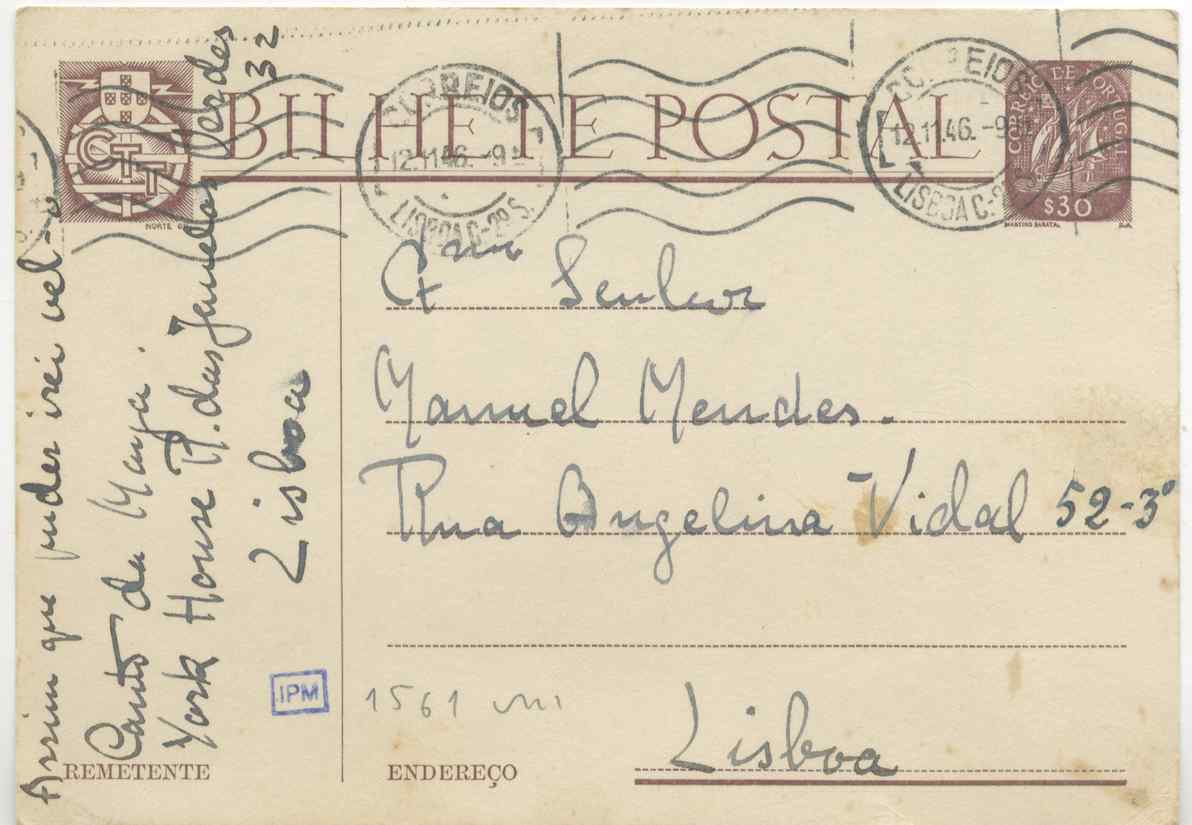 BILHETE POSTAL
CTT
NORTE
CORREIOS
12.11.46.-9
LISBOA C.-2º S.
CORREIOS
12.11.46.-9
LISBOA C.-2º S.
CORREIO DE PORTUGAL
$30
MARTINS BARATA
Exmo Senhor
Manuel Mendes.
Rua Angelina Vidal 52-3º
Lisboa
Assim que puder irei vel-o
Canto da Maya.
York House R. das Janelas Verdes
32
Lisboa
IPM
1561
REMETENTE
ENDEREÇO